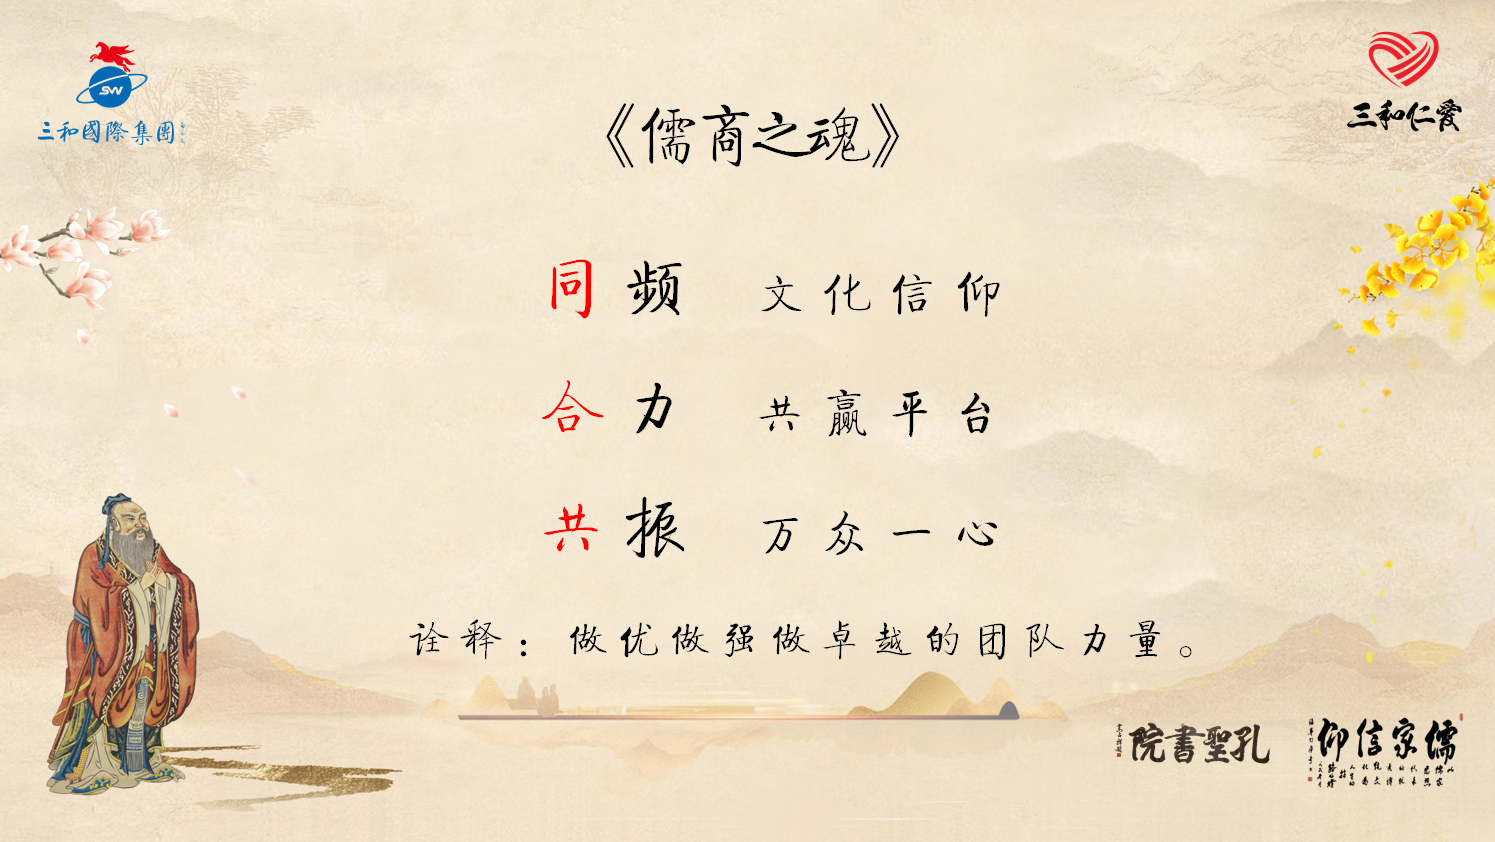 SW
三和國際集團
三和仁爱
《儒商之魂》
同频 文化信仰
合力 共赢平台
共振 万众一心
诠释：做优做强做卓越的团队力量。
院書聖孔
仰信家儒